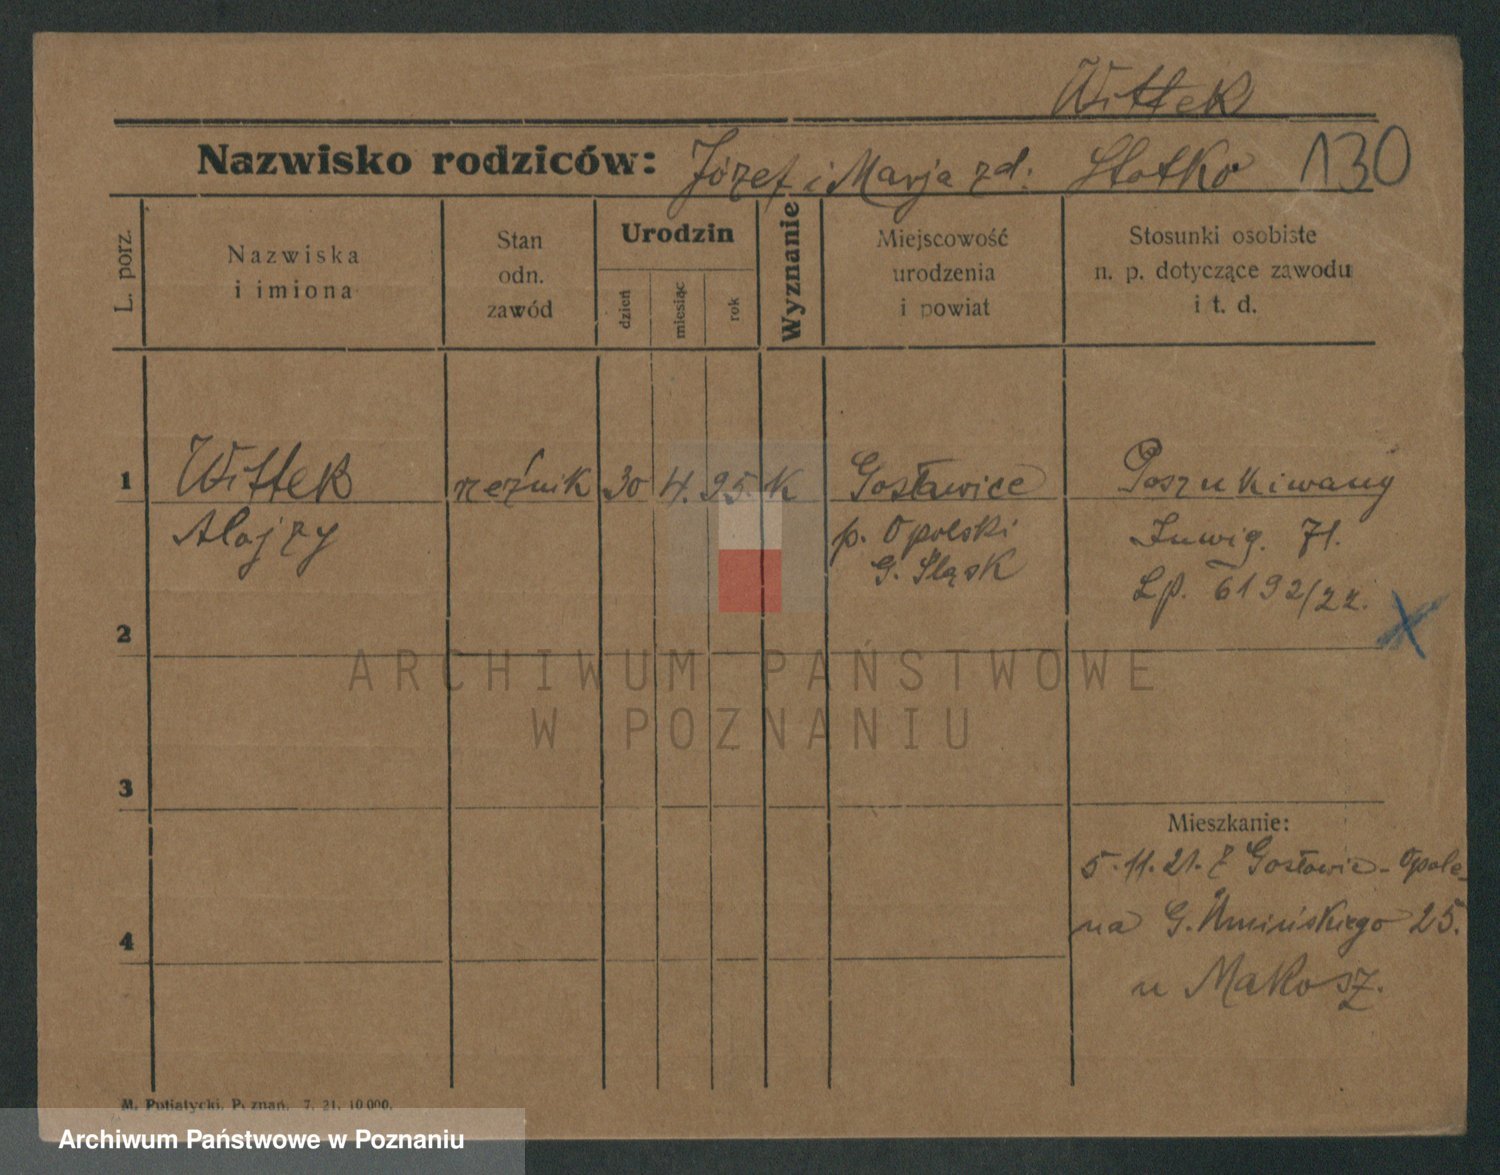 Wittek
Nazwisko rodziców: Józef i Marja zd: Slotko 130
L. porz.
Nazwiska
i imiona
Stan
odn.
zawód
Urodzin
dzień
miesiąc
rok
Wyznanie
Miejscowość
urodzenia
i powiat
Stosunki osobiste
n. p. dotyczące zawodu
i t. d.
1 Wittek rzeźnik 30 4. 95. K Gosławice Poszukiwany
Alojzy p. Opolski 71.
G. Śląsk Lp. 6192/22.
2
3
Mieszkanie:
5.11.21. z Gosławic - Opole
4 na G. Umińskiego 25.
u Makosz.
M. Putiatycki, Poznań. 7. 21. 10 000.
ARCHIWUM PAŃSTWOWE
W POZNANIU
Archiwum Państwowe w Poznaniu